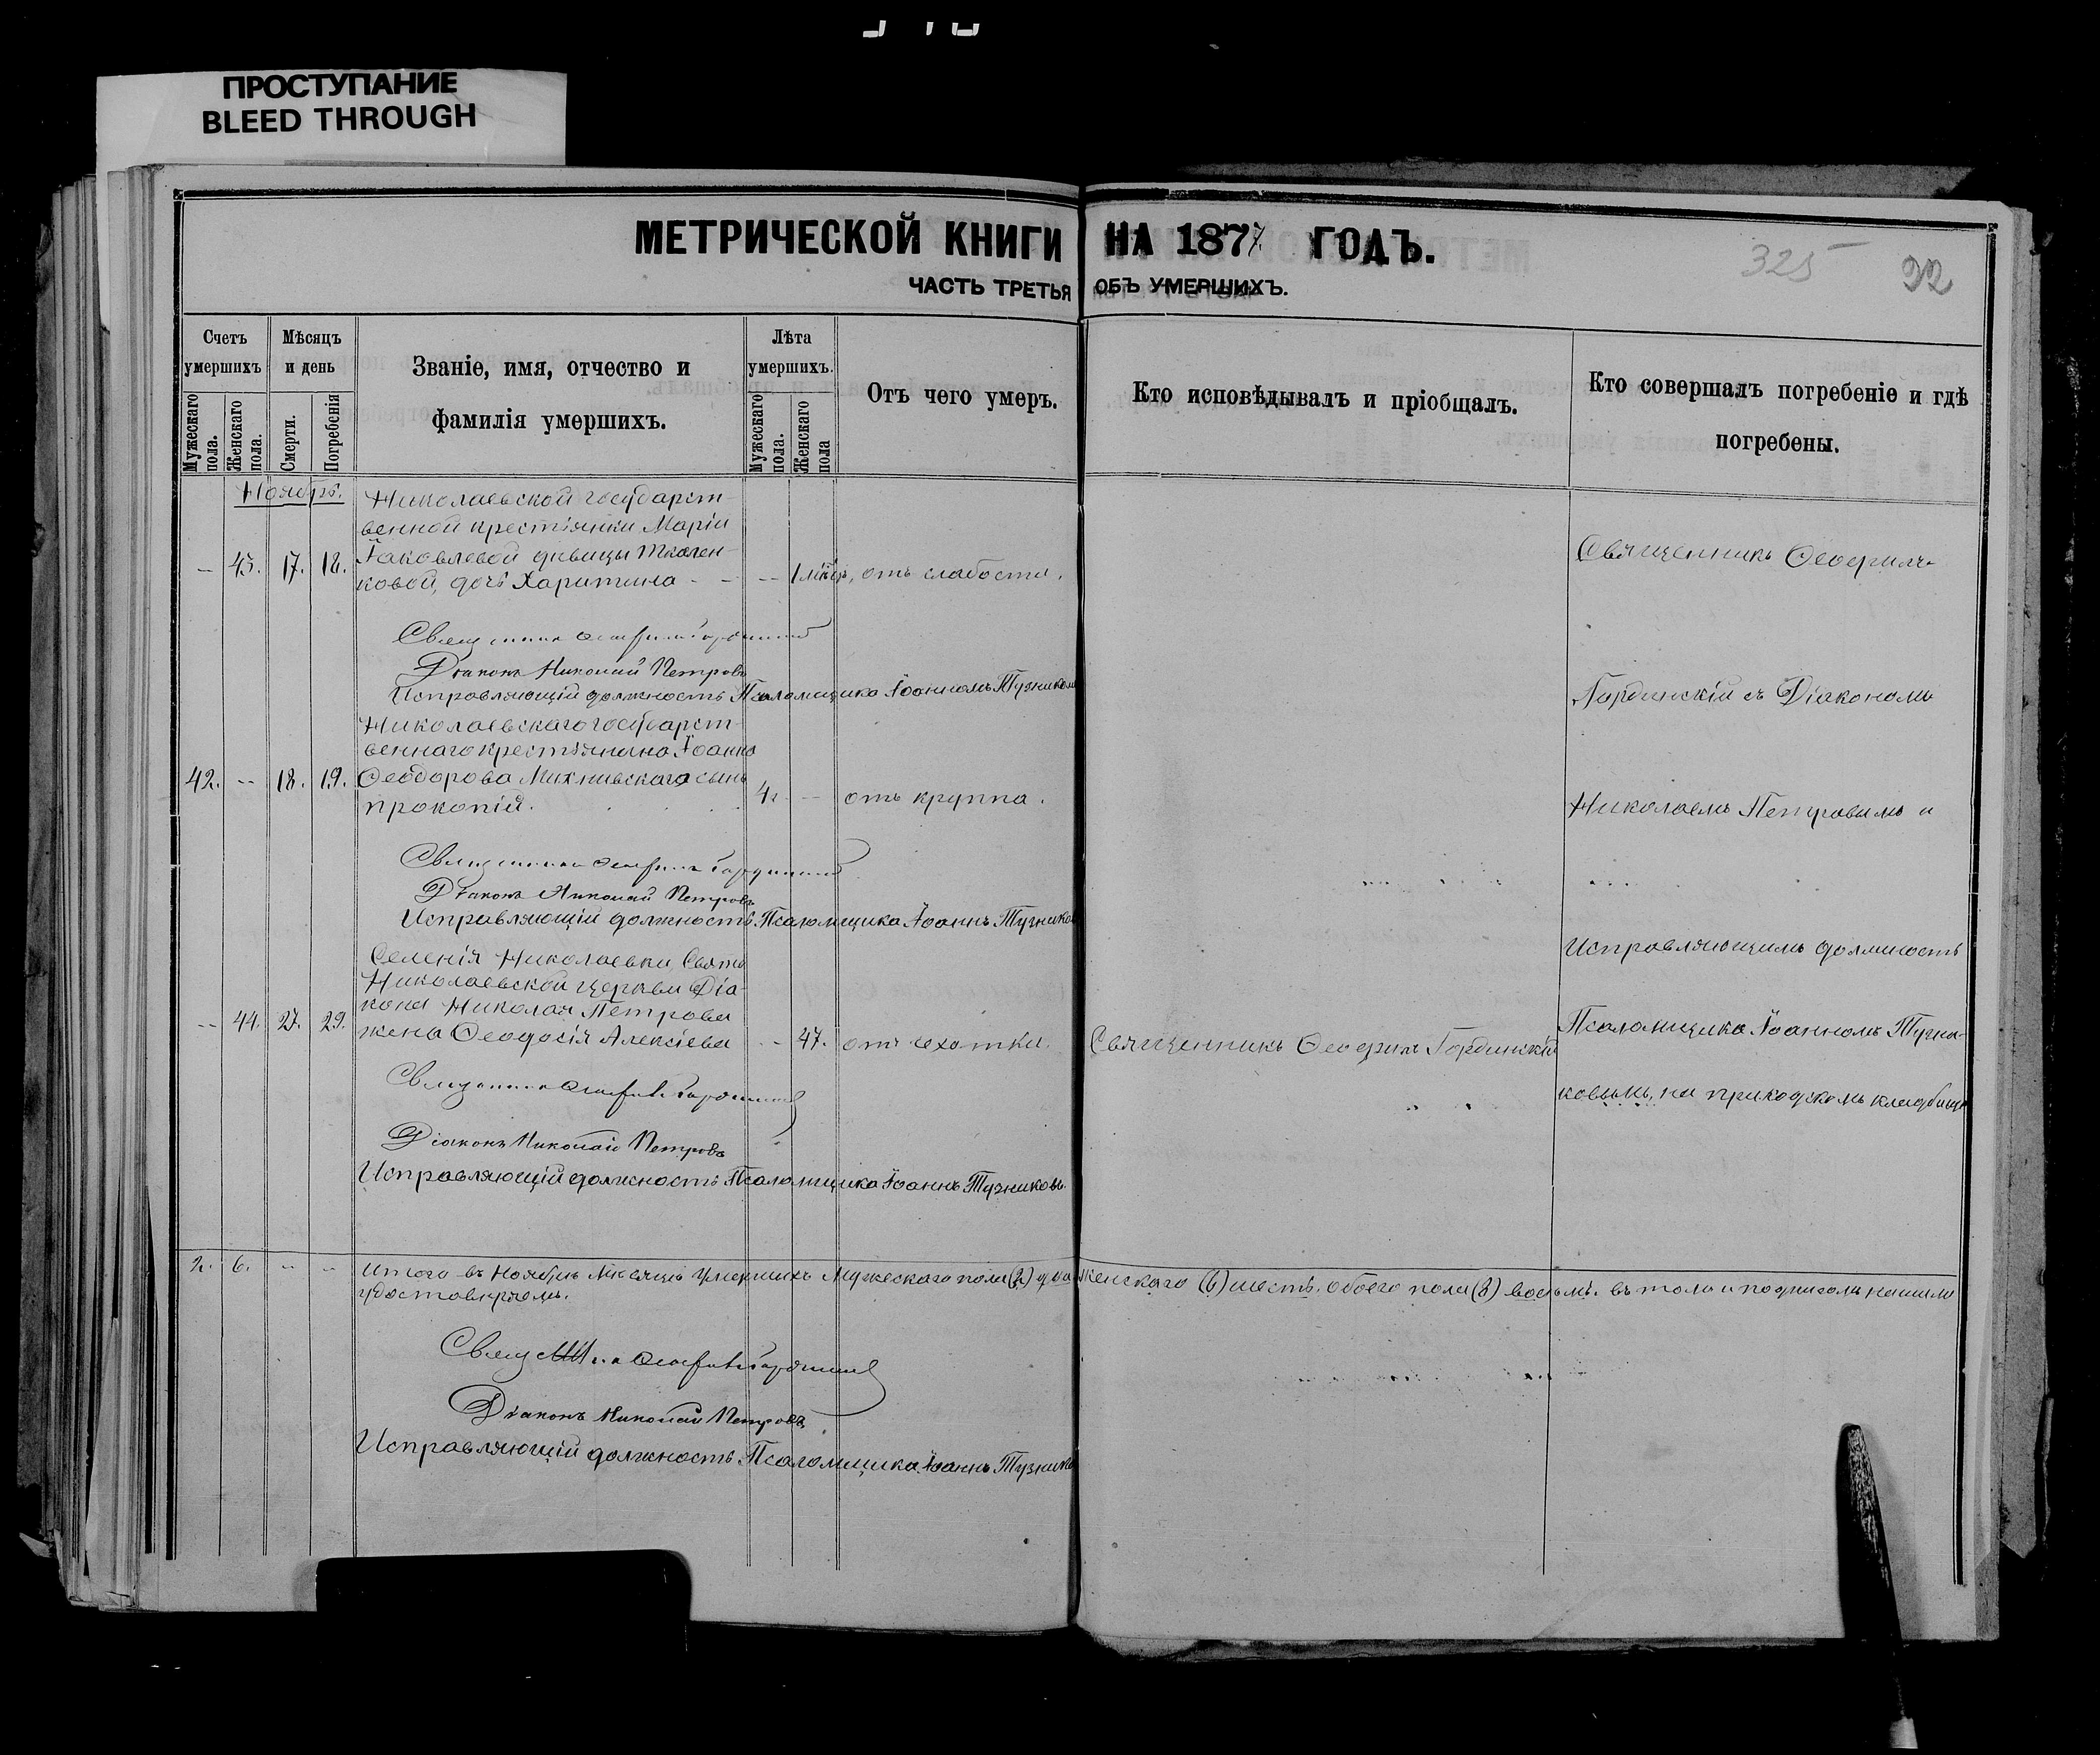 ПРОСТУПАНИЕ
BLEED THROUGH
МЕТРИЧЕСКОЙ КНИГИ НА 1877 ГОДЪ.
ЧАСТЬ ТРЕТЬЯ ОБЪ УМЕРШИХЪ.
325
92
Счетъ умершихъ
Мужескаго пола.
Женскаго пола.
Мѣсяцъ и день
Смерти.
Погребенія
Званіе, имя, отчество и
фамилія умершихъ.
Лѣта умершихъ.
Мужескаго пола.
Женскаго пола
Отъ чего умеръ.
Кто исповѣдывалъ и пріобщалъ.
Кто совершалъ погребеніе и гдѣ
погребены.
Ноябрь.
Николаевской государст-
венной крестьянки Маріи
Іаковлевой дѣвицы Ткачен-
ковой, дочь Харитина
— 43. 17. 18.
— 1 мѣсяцъ, отъ слабости.
Священникъ Ѳеофилъ
Діаконъ Николай Петровъ
Исправляющій должность Псаломщика Іоанномъ Тузиковъ
Гординскій съ Діакономъ
Николаевскаго государст-
веннаго крестьянина Іоанна
Ѳеодорова Михневскаго сынъ
Прокопій.
42. — 18. 19.
4. — отъ круппа.
Николаемъ Петровымъ и
Діаконъ Николай Петровъ
Исправляющій должность Псаломщика Іоаннъ
Исправляющимъ должность
Селенія Николаевки, Свято
Николаевской церкви Діа-
кона Николая Петрова
жена Ѳеодосія Алексіева
— 44. 27. 29.
— 47. отъ чахотки.
Священникъ Ѳеофилъ Гординскій
Псаломщика Іоанномъ
ковымъ, на приходскомъ кладбищѣ
Діаконъ Николай Петровъ
Исправляющій должность Псаломщика Іоаннъ Тузниковъ.
2. 6. — — Итого въ Ноябрѣ мѣсяцѣ умершихъ мужескаго пола (2) два женскаго (6) шесть, обоего пола (8) восемь. въ томъ и подписомъ нашимъ
удостовѣряемъ.
Діаконъ Николай Петровъ
Исправляющій должность Псаломщика Іоаннъ